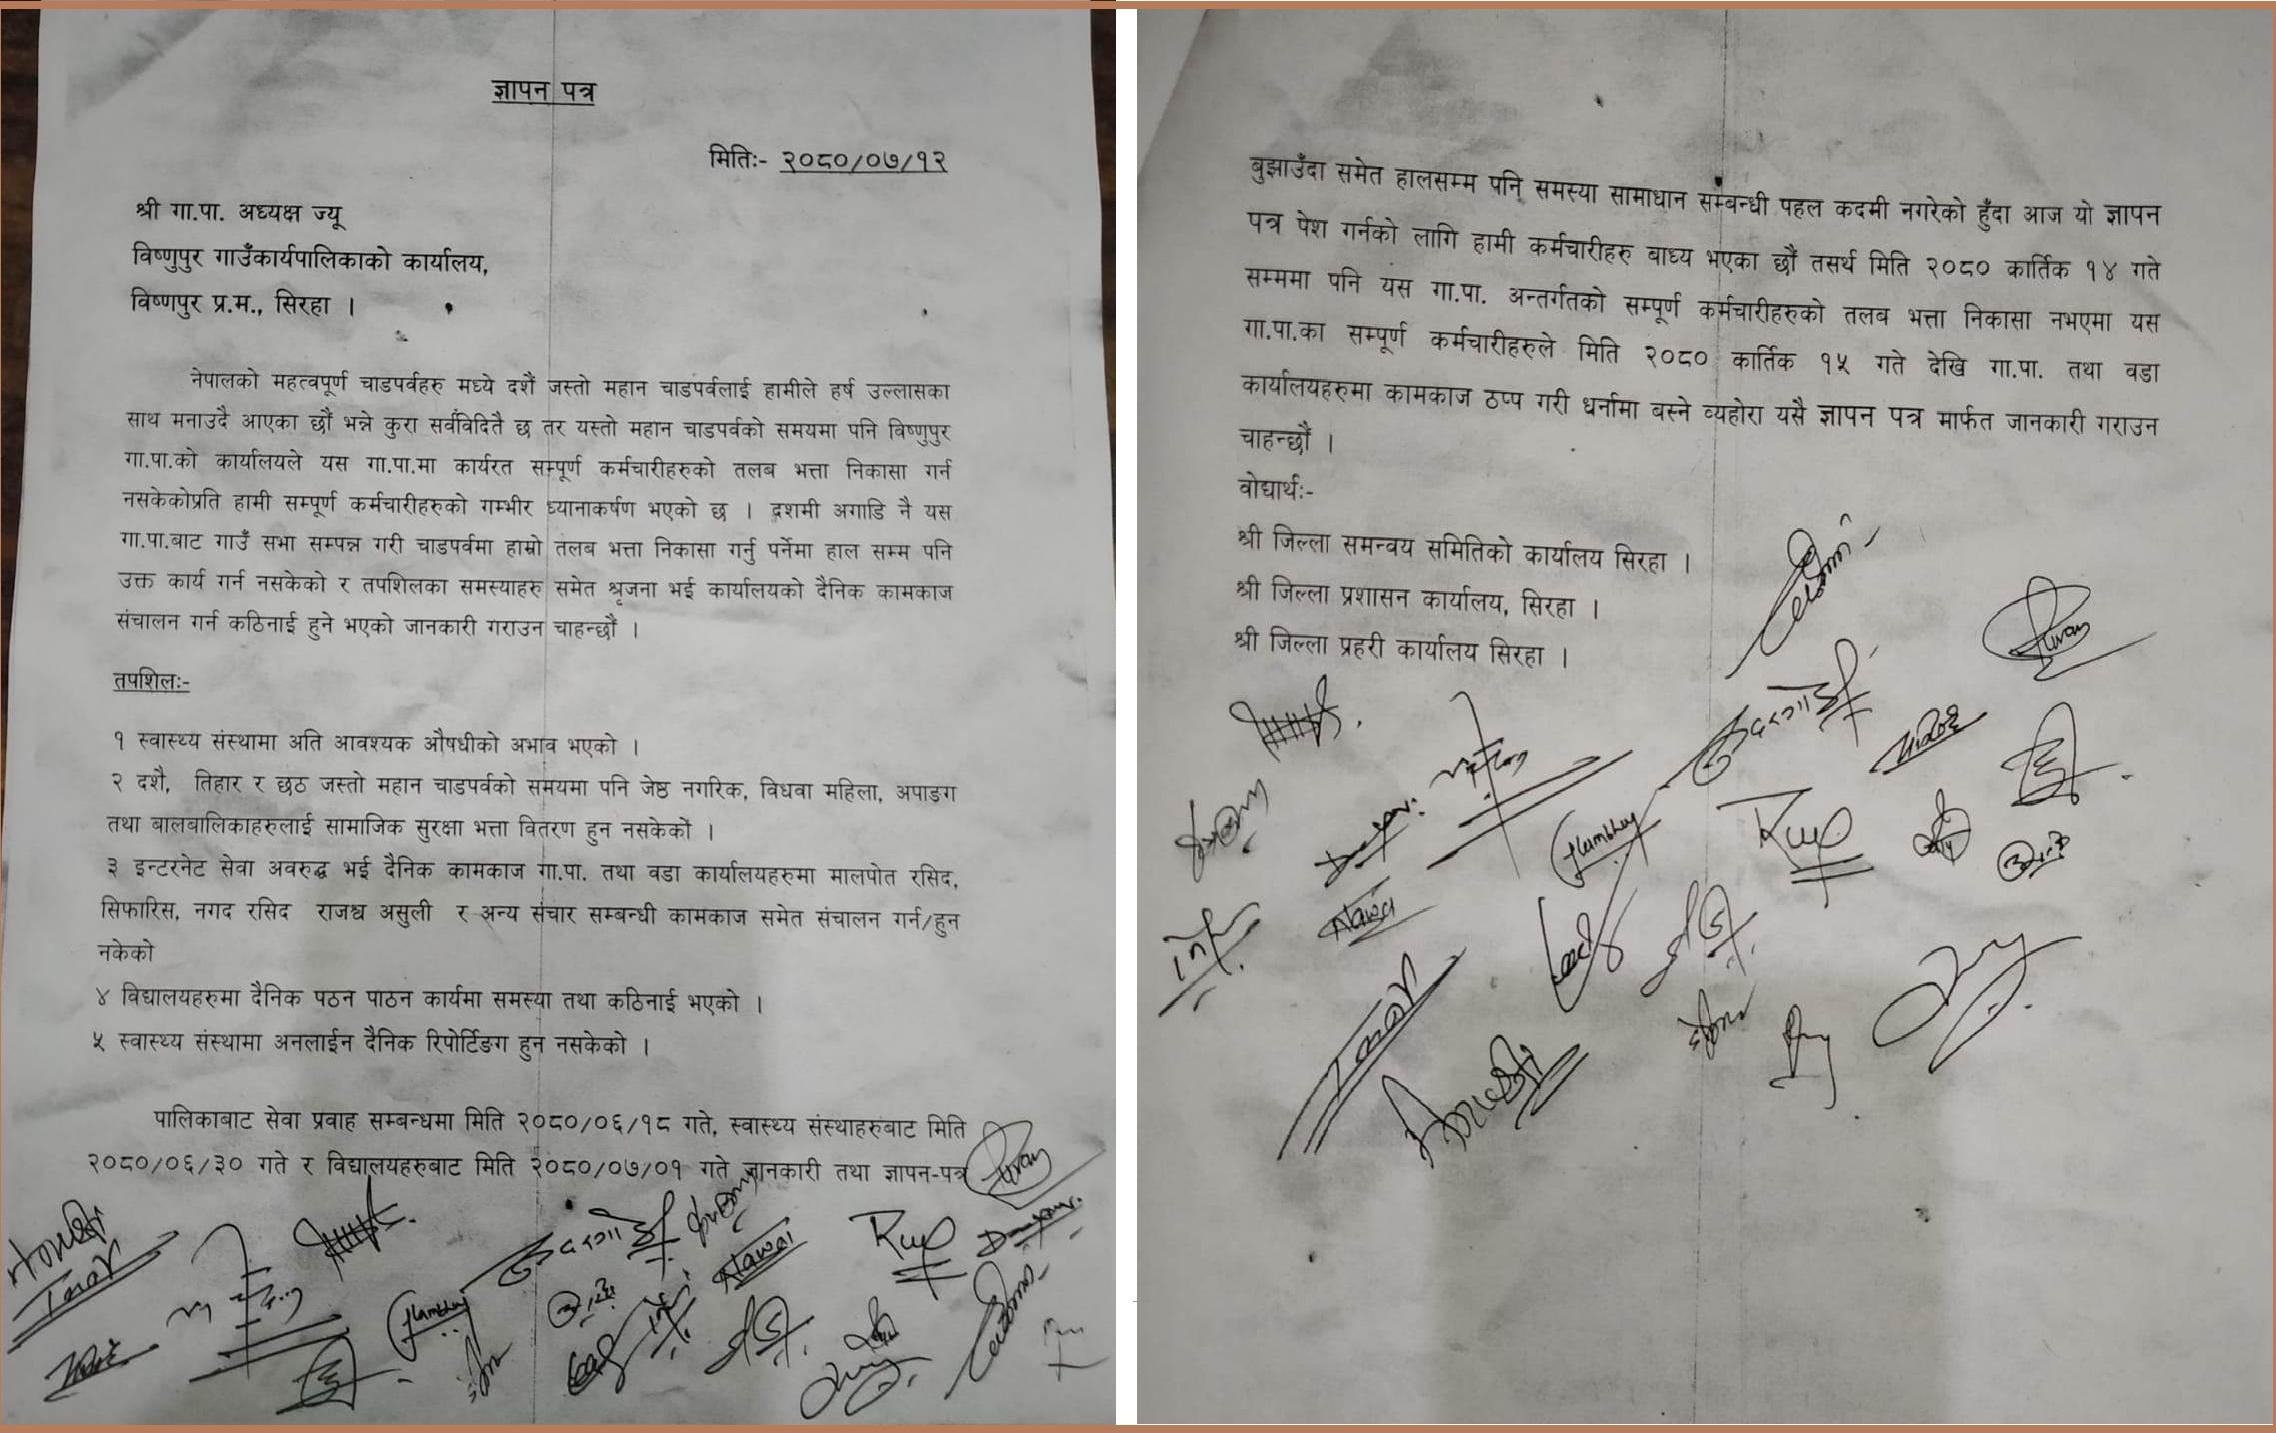 ज्ञापन पत्र
मितिः- २०८०/०७/१२
श्री गा.पा. अध्यक्ष ज्यू
विष्णुपुर गाउँकार्यपालिकाको कार्यालय,
विष्णपुर प्र.म., सिरहा ।
नेपालको महत्वपूर्ण चाडपर्वहरु मध्ये दशैं जस्तो महान चाडपर्वलाई हामीले हर्ष उल्लासका
साथ मनाउदै आएका छौं भन्ने कुरा सर्वविदितै छ तर यस्तो महान चाडपर्वको समयमा पनि विष्णुपुर
गा.पा.को कार्यालयले यस गा.पा.मा कार्यरत सम्पूर्ण कर्मचारीहरुको तलब भत्ता निकासा गर्न
नसकेकोप्रति हामी सम्पूर्ण कर्मचारीहरुको गम्भीर ध्यानाकर्षण भएको छ । दशमी अगाडि नै यस
गा.पा.बाट गाउँ सभा सम्पन्न गरी चाडपर्वमा हाम्रो तलब भत्ता निकासा गर्नु पर्नेमा हाल सम्म पनि
उक्त कार्य गर्न नसकेको र तपशिलका समस्याहरु समेत श्रृजना भई कार्यालयको दैनिक कामकाज
संचालन गर्न कठिनाई हुने भएको जानकारी गराउन चाहन्छौं ।
तपशिलः-
१ स्वास्थ्य संस्थामा अति आवश्यक औषधीको अभाव भएको ।
२ दशै, तिहार र छठ जस्तो महान चाडपर्वको समयमा पनि जेष्ठ नगरिक, विधवा महिला, अपाङग
तथा बालबालिकाहरुलाई सामाजिक सुरक्षा भत्ता वितरण हुन नसकेकों ।
३ इन्टरनेट सेवा अवरुद्ध भई दैनिक कामकाज गा.पा. तथा वडा कार्यालयहरुमा मालपोत रसिद,
सिफारिस, नगद रसिद राजश्व असुली र अन्य संचार सम्बन्धी कामकाज समेत संचालन गर्न/हुन
नकेको
४ विद्यालयहरुमा दैनिक पठन पाठन कार्यमा समस्या तथा कठिनाई भएको ।
५ स्वास्थ्य संस्थामा अनलाईन दैनिक रिपोर्टिङग हुन नसकेको ।
पालिकाबाट सेवा प्रवाह सम्बन्धमा मिति २०८०/०६/१८ गते, स्वास्थ्य संस्थाहरुबाट मिति
२०८०/०६/३० गते र विद्यालयहरुबाट मिति २०८०/०७/०१ गते जानकारी तथा ज्ञापन-पत्र
बुझाउँदा समेत हालसम्म पनि समस्या सामाधान सम्बन्धी पहल कदमी नगरेको हुँदा आज यो ज्ञापन
पत्र पेश गर्नको लागि हामी कर्मचारीहरु बाध्य भएका छौं तसर्थ मिति २०८० कार्तिक १४ गते
सम्ममा पनि यस गा.पा. अन्तर्गतको सम्पूर्ण कर्मचारीहरुको तलब भत्ता निकासा नभएमा यस
गा.पा.का सम्पूर्ण कर्मचारीहरुले मिति २०८० कार्तिक १५ गते देखि गा.पा. तथा वडा
कार्यालयहरुमा कामकाज ठप्प गरी धर्नामा बस्ने व्यहोरा यसै ज्ञापन पत्र मार्फत जानकारी गराउन
चाहन्छौं ।
वोद्यार्थः-
श्री जिल्ला समन्वय समितिको कार्यालय सिरहा ।
श्री जिल्ला प्रशासन कार्यालय, सिरहा ।
श्री जिल्ला प्रहरी कार्यालय सिरहा ।